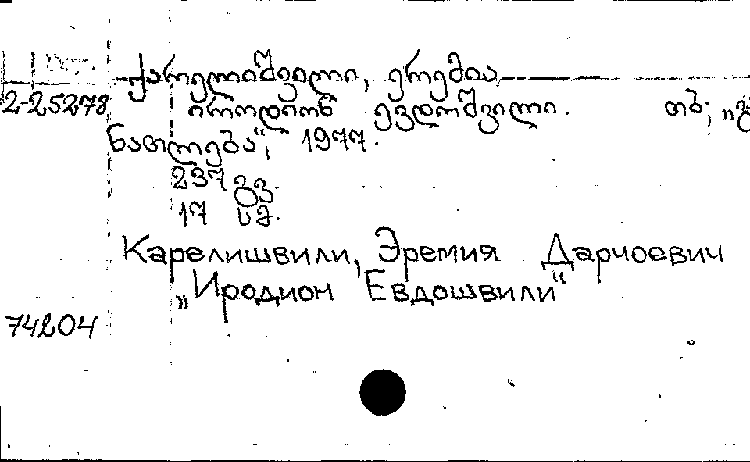 ქარელიშვილი, ერემია
2-25278 იროდიონ ევდოშვილი. თბ; „გ
ნათლება", 1977.
237 გვ.
17 სმ.
Карелишвили, Эремия Дарчоевич
„Иродион Евдошвили"
74204